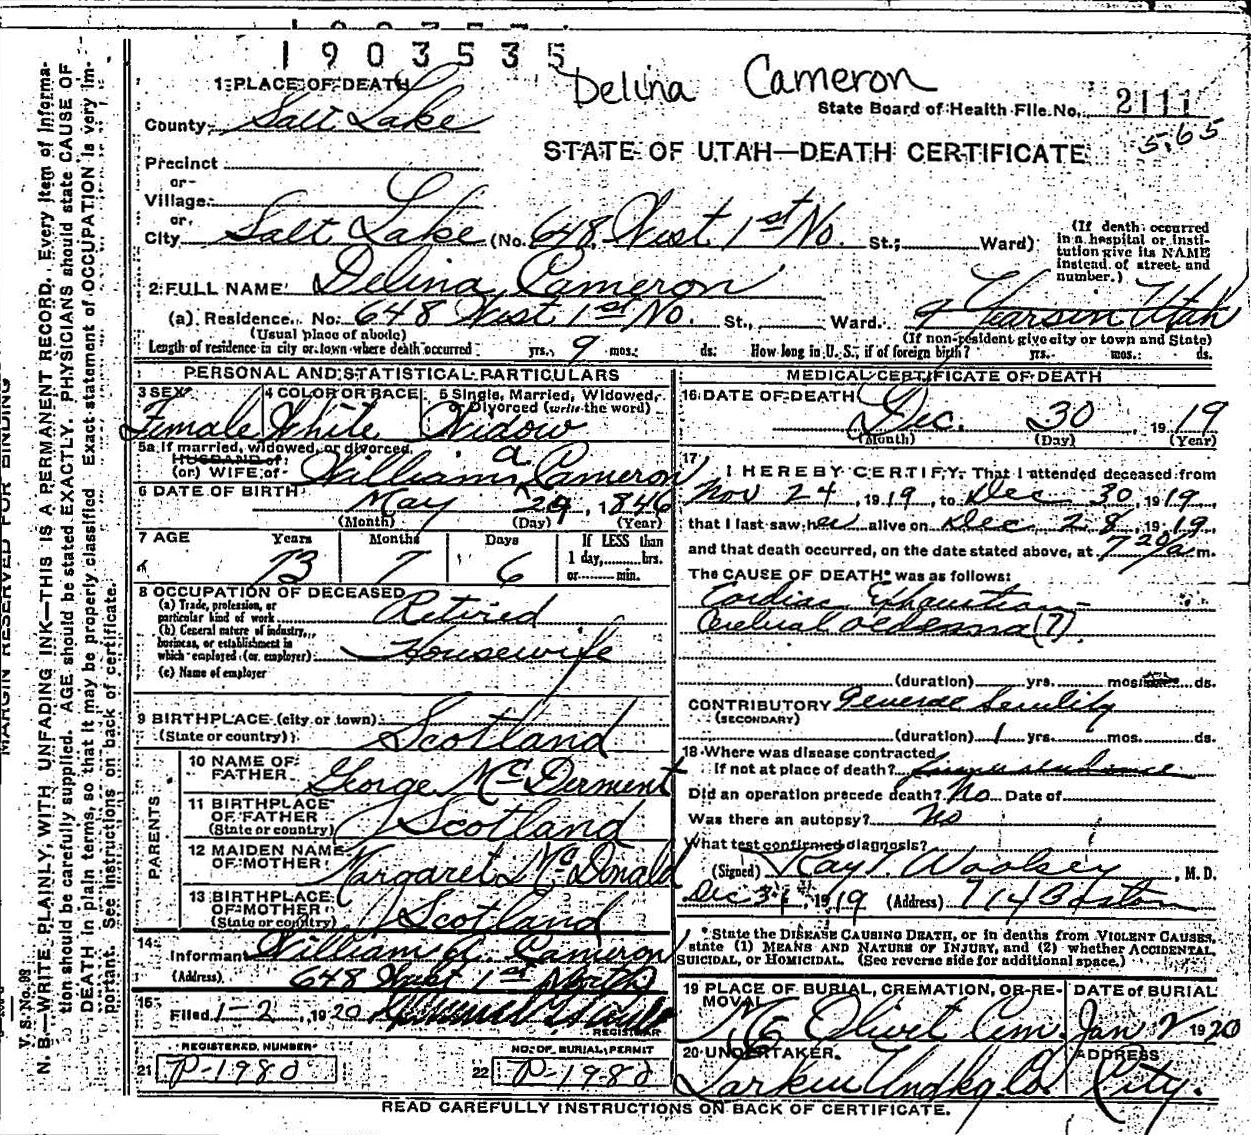 1903535
Delina Cameron
1 PLACE OF DEATH
State Board of Health File No. 2111
County Salt Lake
5.65
STATE OF UTAH—DEATH CERTIFICATE
Precinct
or
Village
or
City Salt Lake (No. 648 West 1st No. St.; Ward)
(If death occurred in a hospital or institution give its NAME instead of street and number.)
2 FULL NAME Delina Cameron
(a) Residence. No. 648 West 1st No. St., Ward. 9 Years in Utah
(Usual place of abode) (If non-resident give city or town and State)
Length of residence in city or town where death occurred yrs. 9 mos. ds. How long in U. S., if of foreign birth? yrs. mos. ds.
PERSONAL AND STATISTICAL PARTICULARS
3 SEX Female
4 COLOR OR RACE White
5 Single, Married, Widowed, or Divorced (write the word) Widow
5a If married, widowed, or divorced
HUSBAND of
(or) WIFE of William a. Cameron
6 DATE OF BIRTH May 24, 1846
(Month) (Day) (Year)
7 AGE Years 73 Months 7 Days 6 If LESS than 1 day, hrs. or min.
8 OCCUPATION OF DECEASED
(a) Trade, profession, or particular kind of work Retired
(b) General nature of industry, business, or establishment in which employed (or employer) Housewife
(c) Name of employer
9 BIRTHPLACE (city or town)
(State or country) Scotland
PARENTS
10 NAME OF FATHER George McDerment
11 BIRTHPLACE OF FATHER (State or country) Scotland
12 MAIDEN NAME OF MOTHER Margaret McDonald
13 BIRTHPLACE OF MOTHER (State or country) Scotland
14 Informant William A. Cameron
(Address) 648 West 1st North
15 Filed 1-2, 1920
REGISTRAR
REGISTERED NUMBER
21 P-1980
NO. OF BURIAL PERMIT
22 P-1980
MEDICAL CERTIFICATE OF DEATH
16 DATE OF DEATH Dec. 30, 1919
(Month) (Day) (Year)
17 I HEREBY CERTIFY, That I attended deceased from
Nov 24, 1919, to Dec 30, 1919,
that I last saw her alive on Dec 28, 1919,
and that death occurred, on the date stated above, at 7 20/a m.
The CAUSE OF DEATH* was as follows:
Cardiac Exhaustion
Cerebral oedema (?)
(duration) yrs. mos. ds.
CONTRIBUTORY General Senility
(SECONDARY)
(duration) 1 yrs. mos. ds.
18 Where was disease contracted
If not at place of death?
Did an operation precede death? No Date of
Was there an autopsy? No
What test confirmed diagnosis?
(Signed) Ray T. Woolsey, M. D.
Dec 31, 1919 (Address) 714 Boston
* State the DISEASE CAUSING DEATH, or in deaths from VIOLENT CAUSES,
state (1) MEANS AND NATURE OF INJURY, and (2) whether ACCIDENTAL,
SUICIDAL, OR HOMICIDAL. (See reverse side for additional space.)
19 PLACE OF BURIAL, CREMATION, OR REMOVAL Mt Olivet Cem.
DATE OF BURIAL Jan 2 1920
20 UNDERTAKER Larkin Undkg. Co.
ADDRESS City.
READ CAREFULLY INSTRUCTIONS ON BACK OF CERTIFICATE.
MARGIN RESERVED FOR BINDING
V. S. No. 98
N. B.—WRITE PLAINLY, WITH UNFADING INK—THIS IS A PERMANENT RECORD. Every item of information
should be carefully supplied. AGE should be stated EXACTLY. PHYSICIANS should state CAUSE OF
DEATH in plain terms, so that it may be properly classified. Exact statement of OCCUPATION is very important.
See instructions on back of certificate.